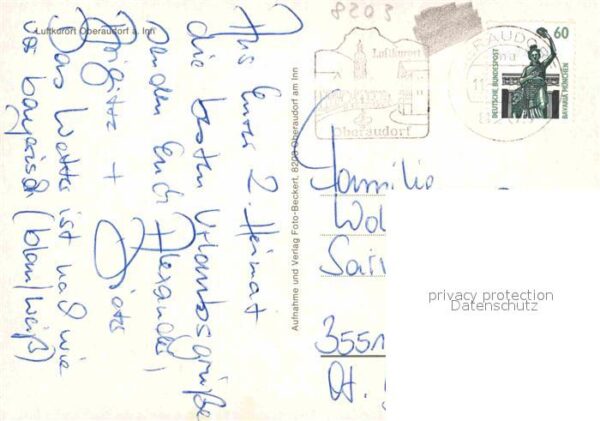 Luftkurort Oberaudorf a. Inn
Aus Eurer 2. Heimat
die besten Urlaubsgrüße
senden Euch Alexander,
Brigitte + Dieter
Das Wetter ist nach wie
vor bayerisch (blau/weiß)
Aufnahme und Verlag Foto-Beckert, 8203 Oberaudorf am Inn
5058
Luftkurort
Oberaudorf
60
DEUTSCHE BUNDESPOST
BAVARIA MÜNCHEN
Familie
3551
privacy protection
Datenschutz